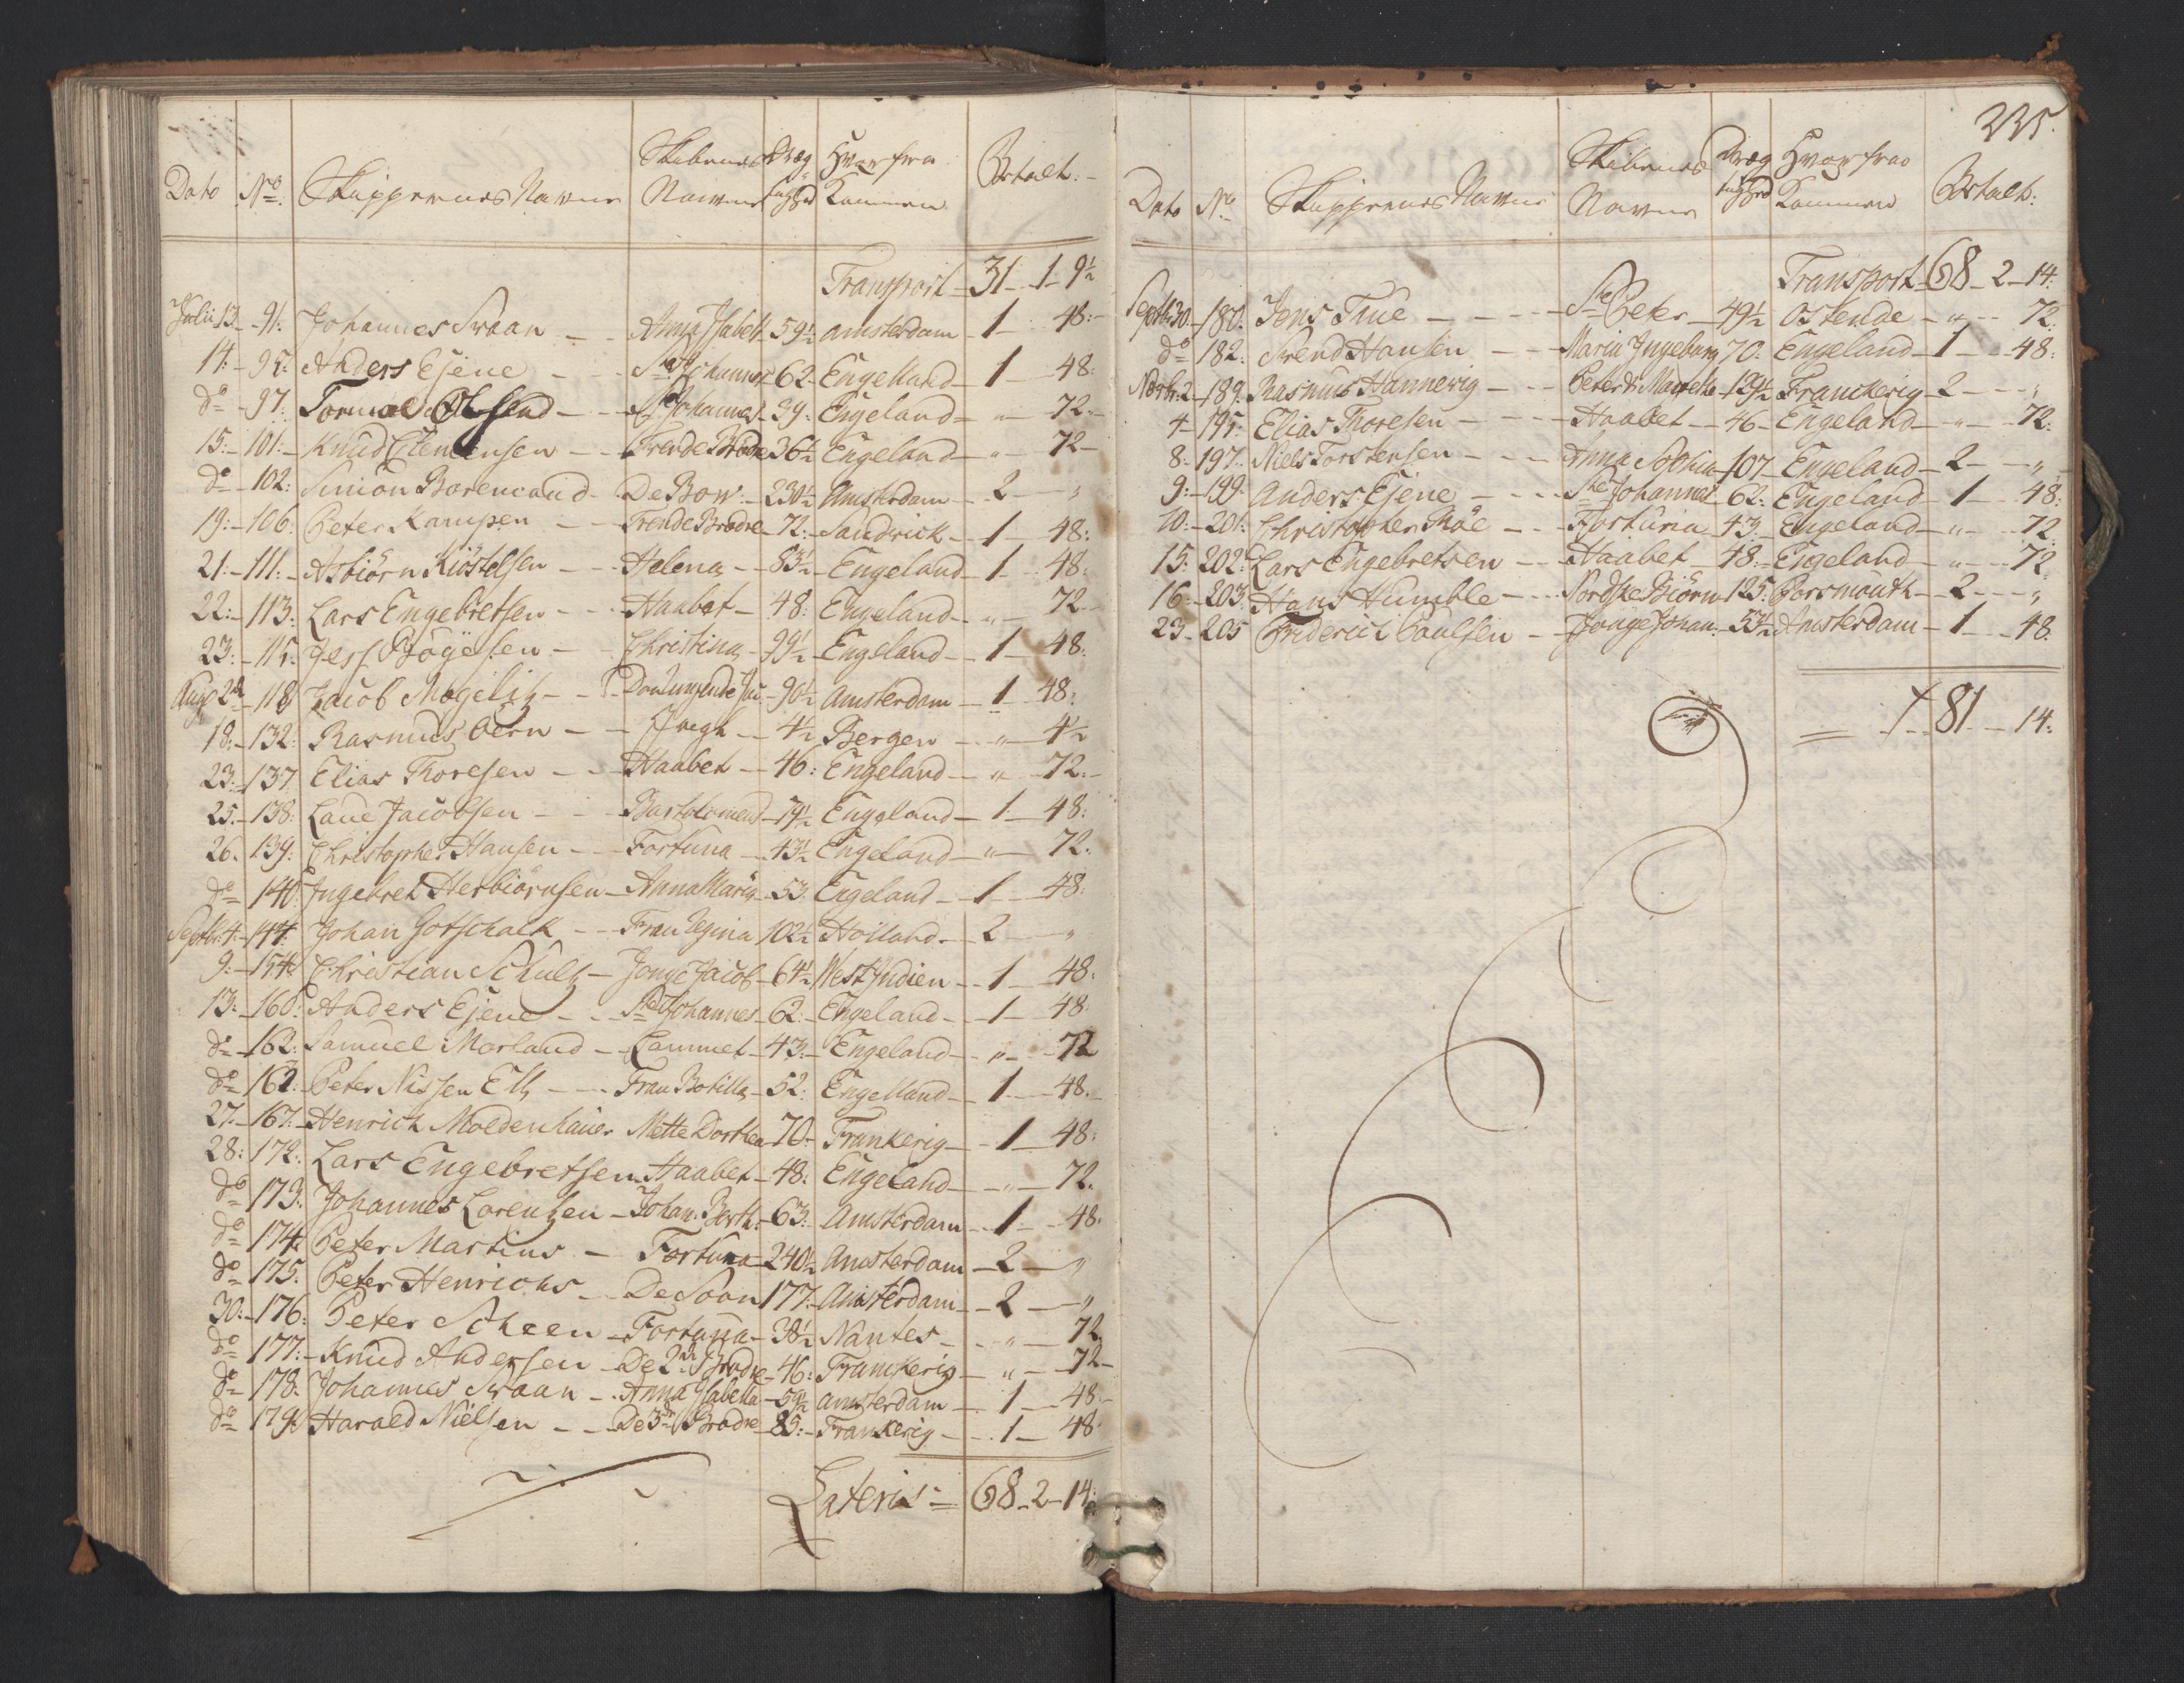 Dato No Skippernes Navne Skibenes Navne Dræg tighed Hvor fra Kommen Betalt:
Transport 31 1 9½
Julii 13 91: Johannes Svaan Anna Isabela 59½ Amsterdam 1 48:
14: 95: Anders Ejene Ste Johannes 62 Engelland 1 48:
do 97: Ste Johannes 39: Engeland " 72:
15: 101: Knud Clemensen Trende Brødre 36½ Engeland " 72
do 102: Simon Borencand De Bow 230½ Amsterdam 2 "
19: 106: Peter Kampen Trende Brødre 72: Sandvick 1 48:
21: 111: Asbiörn Kiöstelsen Helena 83½ Engeland 1 48:
22: 113: Lars Engebretsen Haabet 48: Engeland " 72
23: 115: Jess Bøÿesen Christina 99½ Engeland 1 48:
Aug 2d 118: Jacob Mogelis 90½ Amsterdam 1 48:
18: 132: Rasmus Oern Jægt 4½ Bergen " 4½
23: 137 Elias Thoresen Haabet 46: Engeland " 72:
25: 138: Laue Jacobsen Bartolomeus 74½ Engeland 1 48:
26: 139: Christopher Hansen Fortuna 43½ Engeland " 72:
do 140: Ingebret Herbiörnsen Anna Maria 53: Engeland 1 48:
Septbr: 4: 144: Johan Gotschalk Frau Regina 102½ Holland 2 "
9: 154: Christian Schultz Jonge Jacob 64½ West Indien 1 48:
13: 160: Anders Ejene Ste Johannes 62: Engeland 1 48
do 162: Samuel Morland Lammet 43: Engeland " 72
do 162: Peter Nissen Frau Botilla 52: Engelland 1 48:
27: 167: Henrich Moldenhauer Mette Dorthea 70: Frankerig 1 48:
28: 172: Lars Engebretsen Haabet 48: Engeland " 72:
do 173: Johannes Lorentzen Johan: Berth: 63: Amsterdam 1 48:
do 174: Peter Martins Fortuna 240½ Amsterdam 2 "
do 175: Peter Henrichs De Soon 177: Amsterdam 2 "
30: 176: Peter Scheen Fortuna 38½ Nantes " 72
do 177: Knud Andersen De 2de Brødre 46: Franckerig " 72
do 178: Johannes Svaan Anna Isabella 59½ Amsterdam 1 48:
do 179: Harald Nielsen De 3de Brødre 85: Frankerig 1 48
Lateris 68 2 14:
225.
Dato No Skippernes Navne Skibenes Navne Dræg tighed Hvor fra Kommen Betalt:
Transport 68 2 14:
Septbr 30 180: Jens Thue Ste Peter 49½ Ostende " 72:
do 182: Svend Hansen Maria Ingeborg 70: Engeland 1 48:
Novbr: 2 189: Rasmus Hannevig 129½ Franckerig 2 "
4 195: Elias Thoresen Haabet 46 Engeland " 72:
8: 197: Niels Torstensen Anna Sophia 107 Engeland 2 "
9: 199: Anders Ejene Ste Johannes 62: Engeland 1 48:
10: 201: Christopher Møe Fortuna 43: Engeland " 72
15: 202: Lars Engebretsen Haabet 48: Engeland " 72
16: 203: Hans Humble Nordske Biörn 125: Porsmouth 2 "
23 205 Friderich Paulsen Jonge Johan: 53½ Amsterdam 1 48:
81 14: